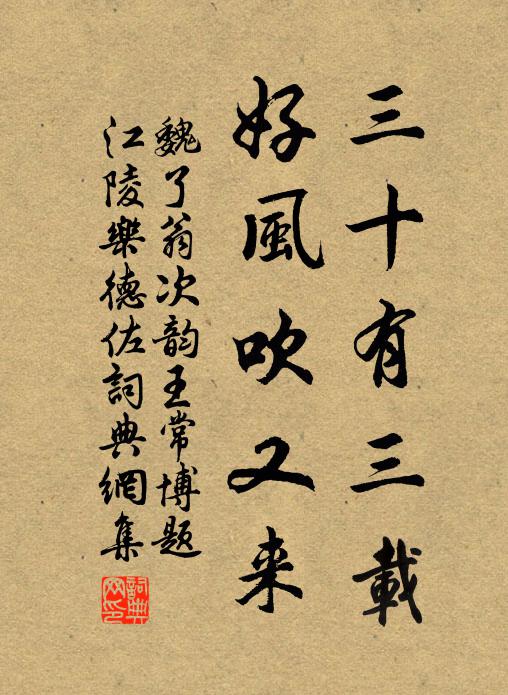 三十有三載
好風吹又来
魏了翁次韵王常博题
江陵樂德佐詞典網集
詞典网印